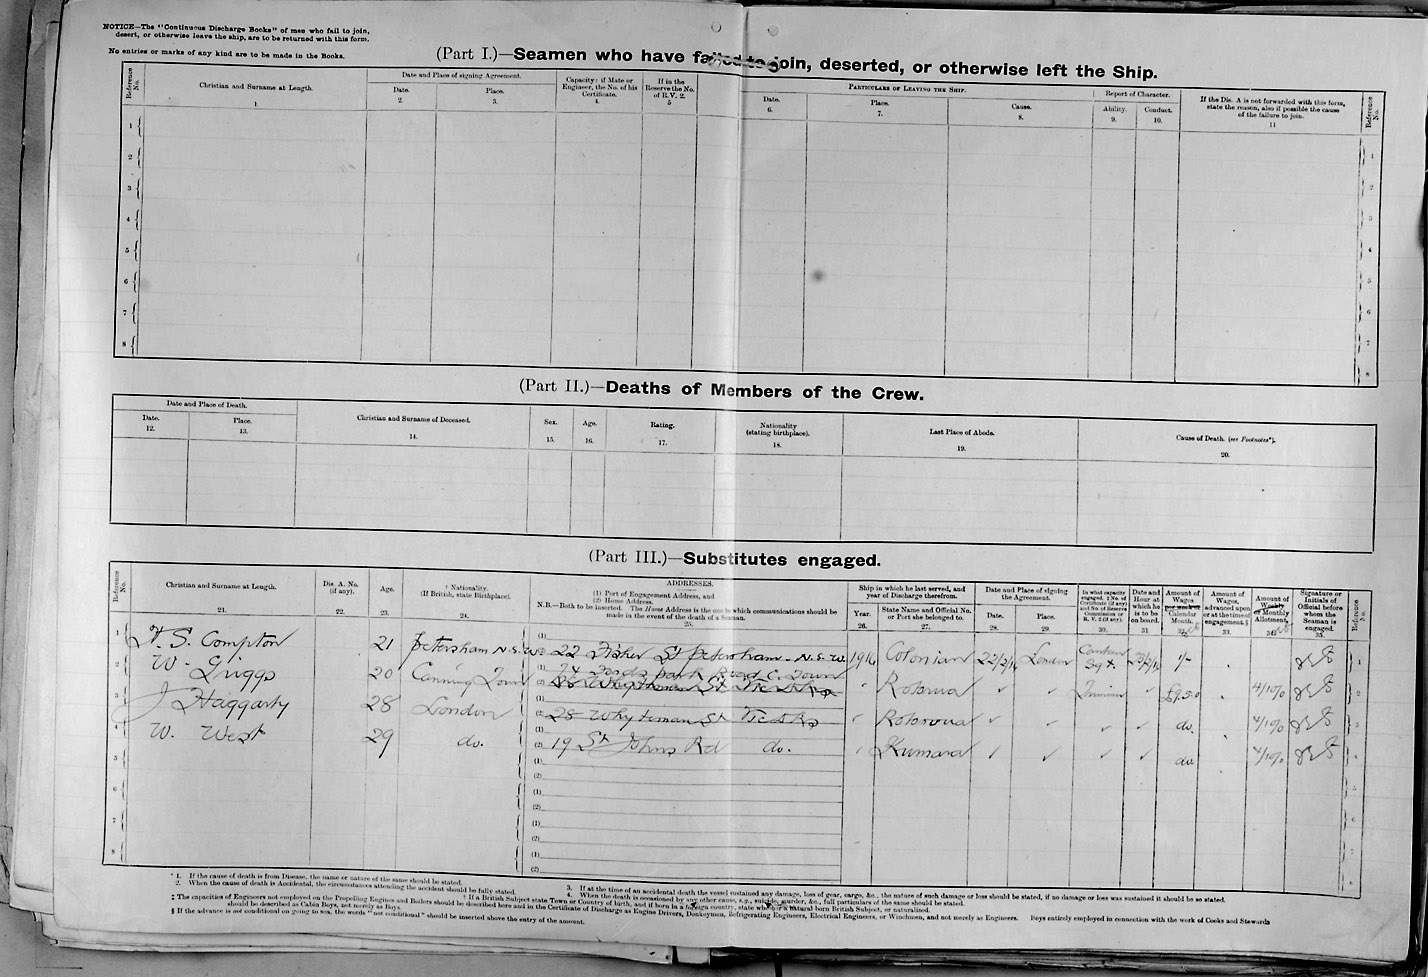 NOTICE—The "Continuous Discharge Books" of men who fail to join,
desert, or otherwise leave the ship, are to be returned with this form.
No entries or marks of any kind are to be made in the Books.
(Part I.)—Seamen who have failed to join, deserted, or otherwise left the Ship.
Reference No.
Christian and Surname at Length.
1.
Date and Place of signing Agreement.
Date.
2.
Place.
3.
Capacity: if Mate or
Engineer, the No. of his
Certificate.
4.
If in the
Reserve the No.
of R.V. 2.
5
PARTICULARS OF LEAVING THE SHIP.
Date.
6.
Place.
7.
Cause.
8.
Report of Character.
Ability.
9.
Conduct.
10.
If the Dis. A is not forwarded with this form,
state the reason, also if possible the cause
of the failure to join.
11
Reference No.
1 1
2 2
3 3
4 4
5 5
6 6
7 7
8 8
(Part II.)—Deaths of Members of the Crew.
Date and Place of Death.
Date.
12.
Place.
13.
Christian and Surname of Deceased.
14.
Sex.
15.
Age.
16.
Rating.
17.
Nationality
(stating birthplace).
18.
Last Place of Abode.
19.
Cause of Death. (see Footnotes*).
20.
(Part III.)—Substitutes engaged.
Reference No.
Christian and Surname at Length.
21.
Dis. A. No.
(if any).
22.
Age.
23.
† Nationality.
(If British, state Birthplace).
24.
ADDRESSES.
(1) Port of Engagement Address, and
(2) Home Address.
N.B.—Both to be inserted. The Home Address is the one to which communications should be
made in the event of the death of a Seaman.
25.
Ship in which he last served, and
year of Discharge therefrom.
Year.
26.
State Name and Official No.
or Port she belonged to.
27.
Date and Place of signing
the Agreement.
Date.
28.
Place.
29.
In what capacity
engaged. ‡ No. of
Certificate (if any)
and No. of Reserve
Commission or
R. V. 2 (if any).
30.
Date and
Hour at
which he
is to be
on board.
31.
Amount of
Wages
per week or
Calendar
Month.
32.
Amount of
Wages,
advanced upon
or at the time of
engagement.§
33.
Amount of
Weekly
or Monthly
Allotment.
34.
Signature or
Initials of
Official before
whom the
Seaman is
engaged.
35.
Reference No.
1 S. Compton 21 Petersham N.S.W. 22 Fisher St Petersham - N.S.W. 1916 Colonian 22/2/16 London 1/- 1
2 W. Griggs 20 Canning Town 74 Fords Park Road C. Town Rotorua Trimmer 4/10/0 2
3 J Haggarty 28 London 28 Whyteman St Rotorua do. 4/10/0 3
4 W. West 29 do. 19 St Johns Rd do. Kumara do. 4/10/0 4
5
6
7
8
* 1. If the cause of death is from Disease, the name or nature of the same should be stated.
2. When the cause of death is Accidental, the circumstances attending the accident should be fully stated.
3. If at the time of an accidental death the vessel sustained any damage, loss of gear, cargo, &c., the nature of such damage or loss should be stated, if no damage or loss was sustained it should be so stated.
4. When the death is occasioned by any other cause, e.g., suicide, murder, &c., full particulars of the same should be stated.
† If a British Subject state Town or Country of birth, and if born in a foreign country, state whether a natural born British Subject, or naturalised.
‡ The capacities of Engineers not employed on the Propelling Engines and Boilers should be described here and in the Certificate of Discharge as Engine Drivers, Donkeymen, Refrigerating Engineers, Electrical Engineers, or Winchmen, and not merely as Engineers. Boys entirely employed in connection with the work of Cooks and Stewards
should be described as Cabin Boys, not merely as Boys.
§ If the advance is not conditional on going to sea, the words "not conditional" should be inserted above the entry of the amount.